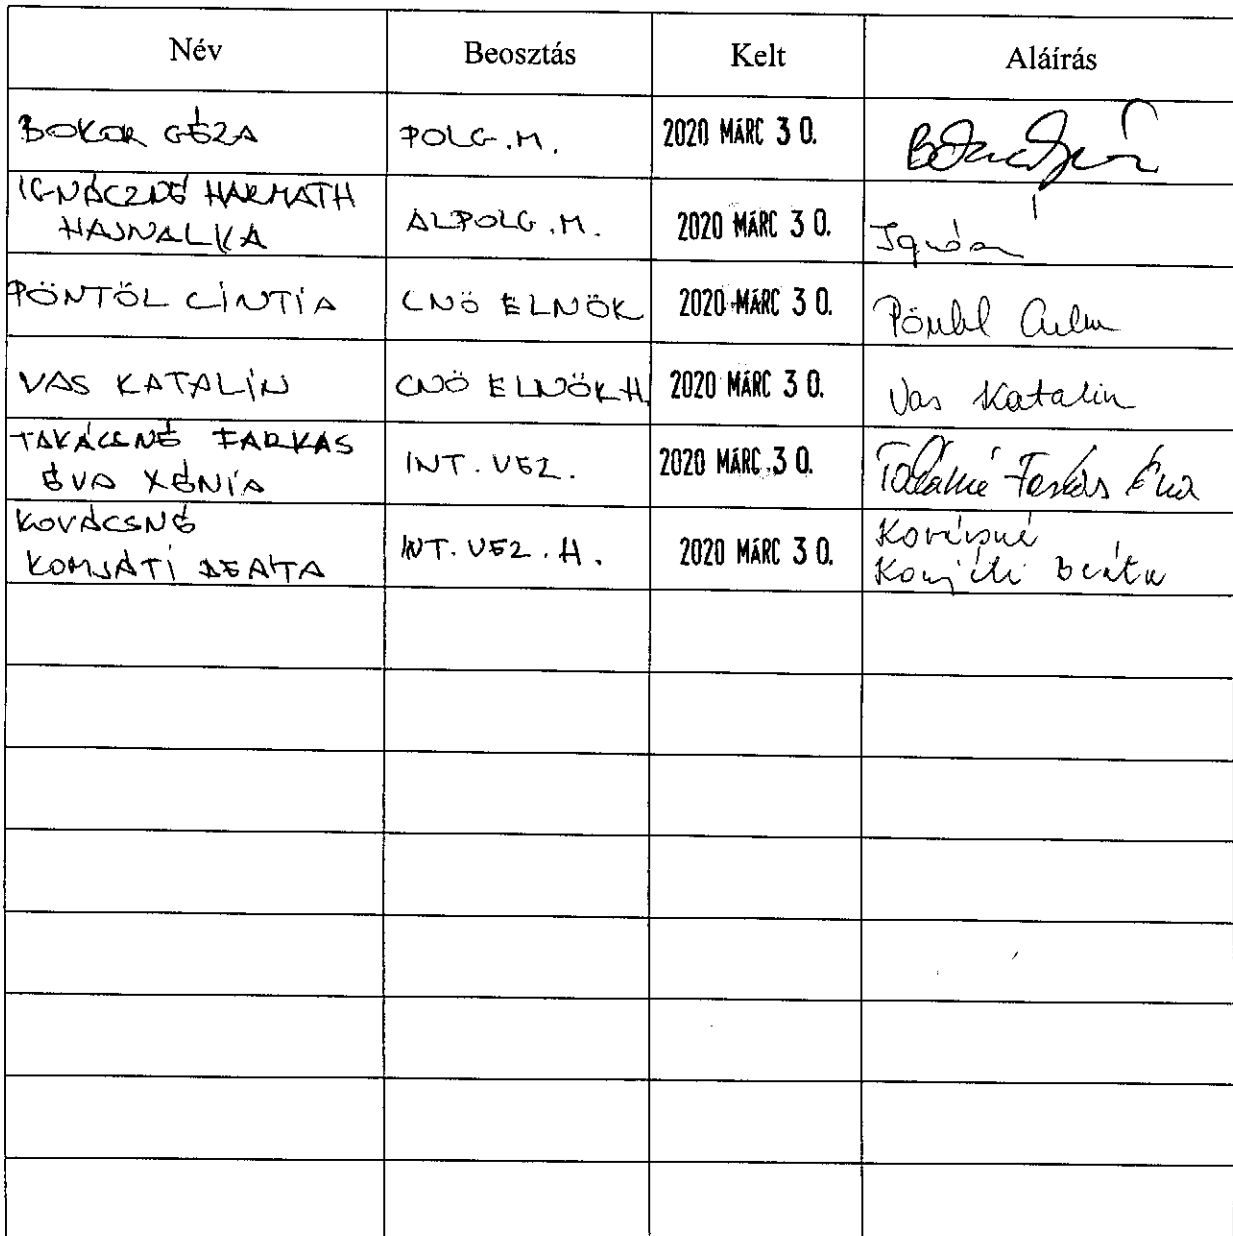 Név Beosztás Kelt Aláírás
BOKOR GÉZA POLG.M. 2020 MÁRC 30.
IGNÁCZNÉ HARMATH
HAJNALKA ALPOLG.M. 2020 MÁRC 30.
PÖNTÖL CINTIA CNÖ ELNÖK 2020 MÁRC 30.
VAS KATALIN CNÖ ELNÖKH 2020 MÁRC 30. Vas Katalin
TAKÁCSNÉ FARKAS
ÉVA XÉNIA INT. VEZ. 2020 MÁRC. 30. Takácsné Farkas Éva
KOVÁCSNÉ Kovácsné
KOMJÁTI BEÁTA INT. VEZ. H. 2020 MÁRC 30. Komjáti Beáta